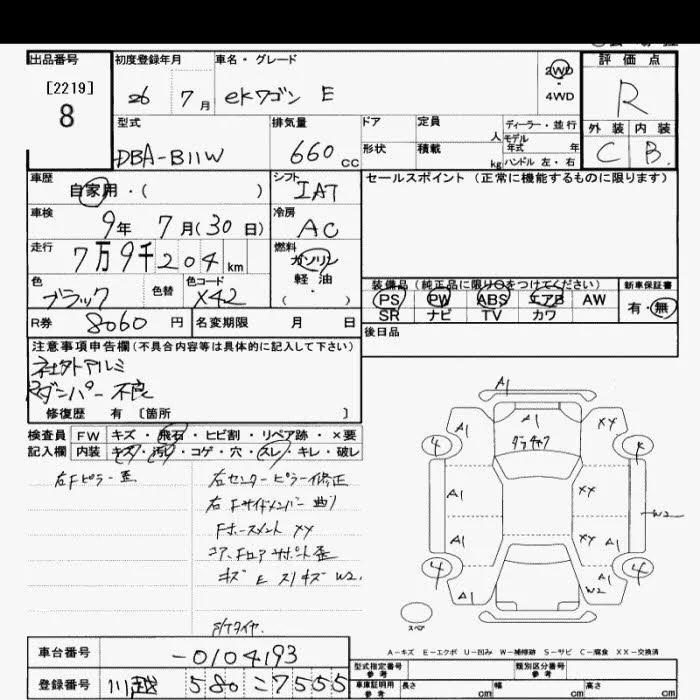 出品番号 初度登録年月 車名・グレード 評価点
[2219]
8
26 7月 ekワゴン E 2WD・4WD R
型式 排気量 ドア 定員 人 ディーラー・並行
モデル年式 年
DBA-B11W 660cc 形状 積載 kg ハンドル 左・右
外装 内装
C B
車歴 自家用・( ) シフト IAT セールスポイント(正常に機能するものに限ります)
車検 9年 7月(30日) 冷房 AC
走行 7万9千204km 燃料 ガソリン
軽油
・
( )
色 ブラック 色替 色コード X42
装備品(純正品に限り○をつけてください) 新車保証書
PS PW ABS エアB AW 有・無
SR ナビ TV カワ
R券 8060円 名変期限 月 日 後日品
注意事項申告欄(不具合内容等は具体的に記入して下さい)
社外アルミ
Rダンパー不良
修復歴 有 〔箇所 〕
検査員 FW キズ・飛石・ヒビ割・リペア跡・×要
記入欄 内装 キズ・汚レ・コゲ・穴・スレ・キレ・破レ
右Fピラー歪 右センターピラー修正
右Fサイドメンバー曲り
Fホースメント XY
コア, Fロアサポート歪
キズ E スリキズ W2.
A1
A1 A1 XY
4
A1 XY W2
A1 XY A1
4 4
A1 W2 A1
スペア
A-キズ E-エクボ U-凹み W-補修跡 S-サビ C-腐食 XX-交換済
車台番号 -0104193
登録番号 川越 580 こ 7555
型式指定番号 参考 類別区分番号 参考
車庫証明用 参考 長さ cm 幅 cm 高さ cm